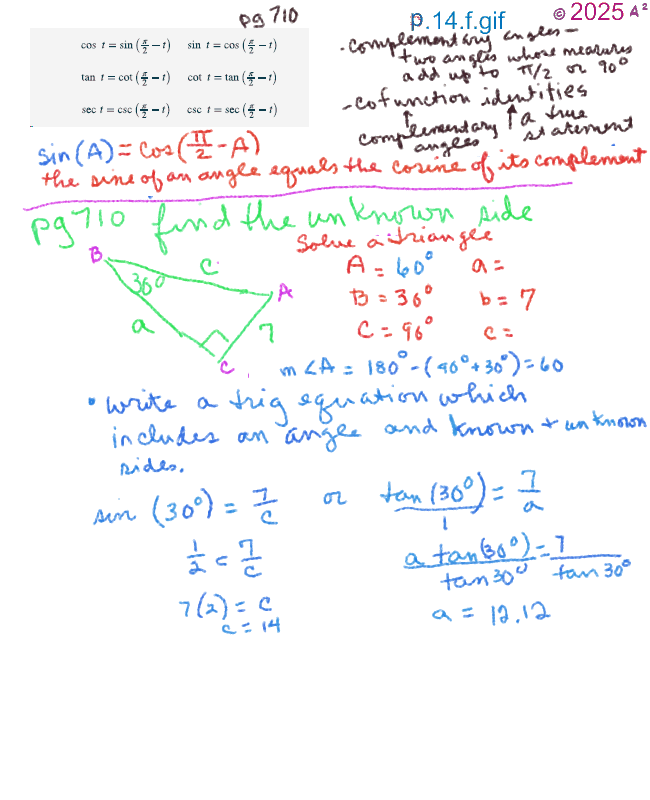 pg 710
p.14.f.gif
© 2025 A²
cos t = sin (π/2 − t)   sin t = cos (π/2 − t)
tan t = cot (π/2 − t)   cot t = tan (π/2 − t)
sec t = csc (π/2 − t)   csc t = sec (π/2 − t)
· complementary angles –
two angles whose measures
add up to π/2 or 90°
- cofunction identities
↑ complementary angles
↑ a true statement
sin(A) = cos(π/2 - A)
the sine of an angle equals the cosine of its complement
pg 710 find the unknown side
Solve a triangle
B
c
30°
A
a
7
C
A = 60°   a =
B = 30°   b = 7
C = 90°   c =
m∠A = 180° - (90° + 30°) = 60
• Write a trig equation which
includes an angle and known + unknown
sides.
sin (30°) = 7/c   or   tan (30°)/1 = 7/a
1/2 = 7/c   a tan(30°)/tan 30° = 7/tan 30°
7(2) = c   a = 12.12
c = 14